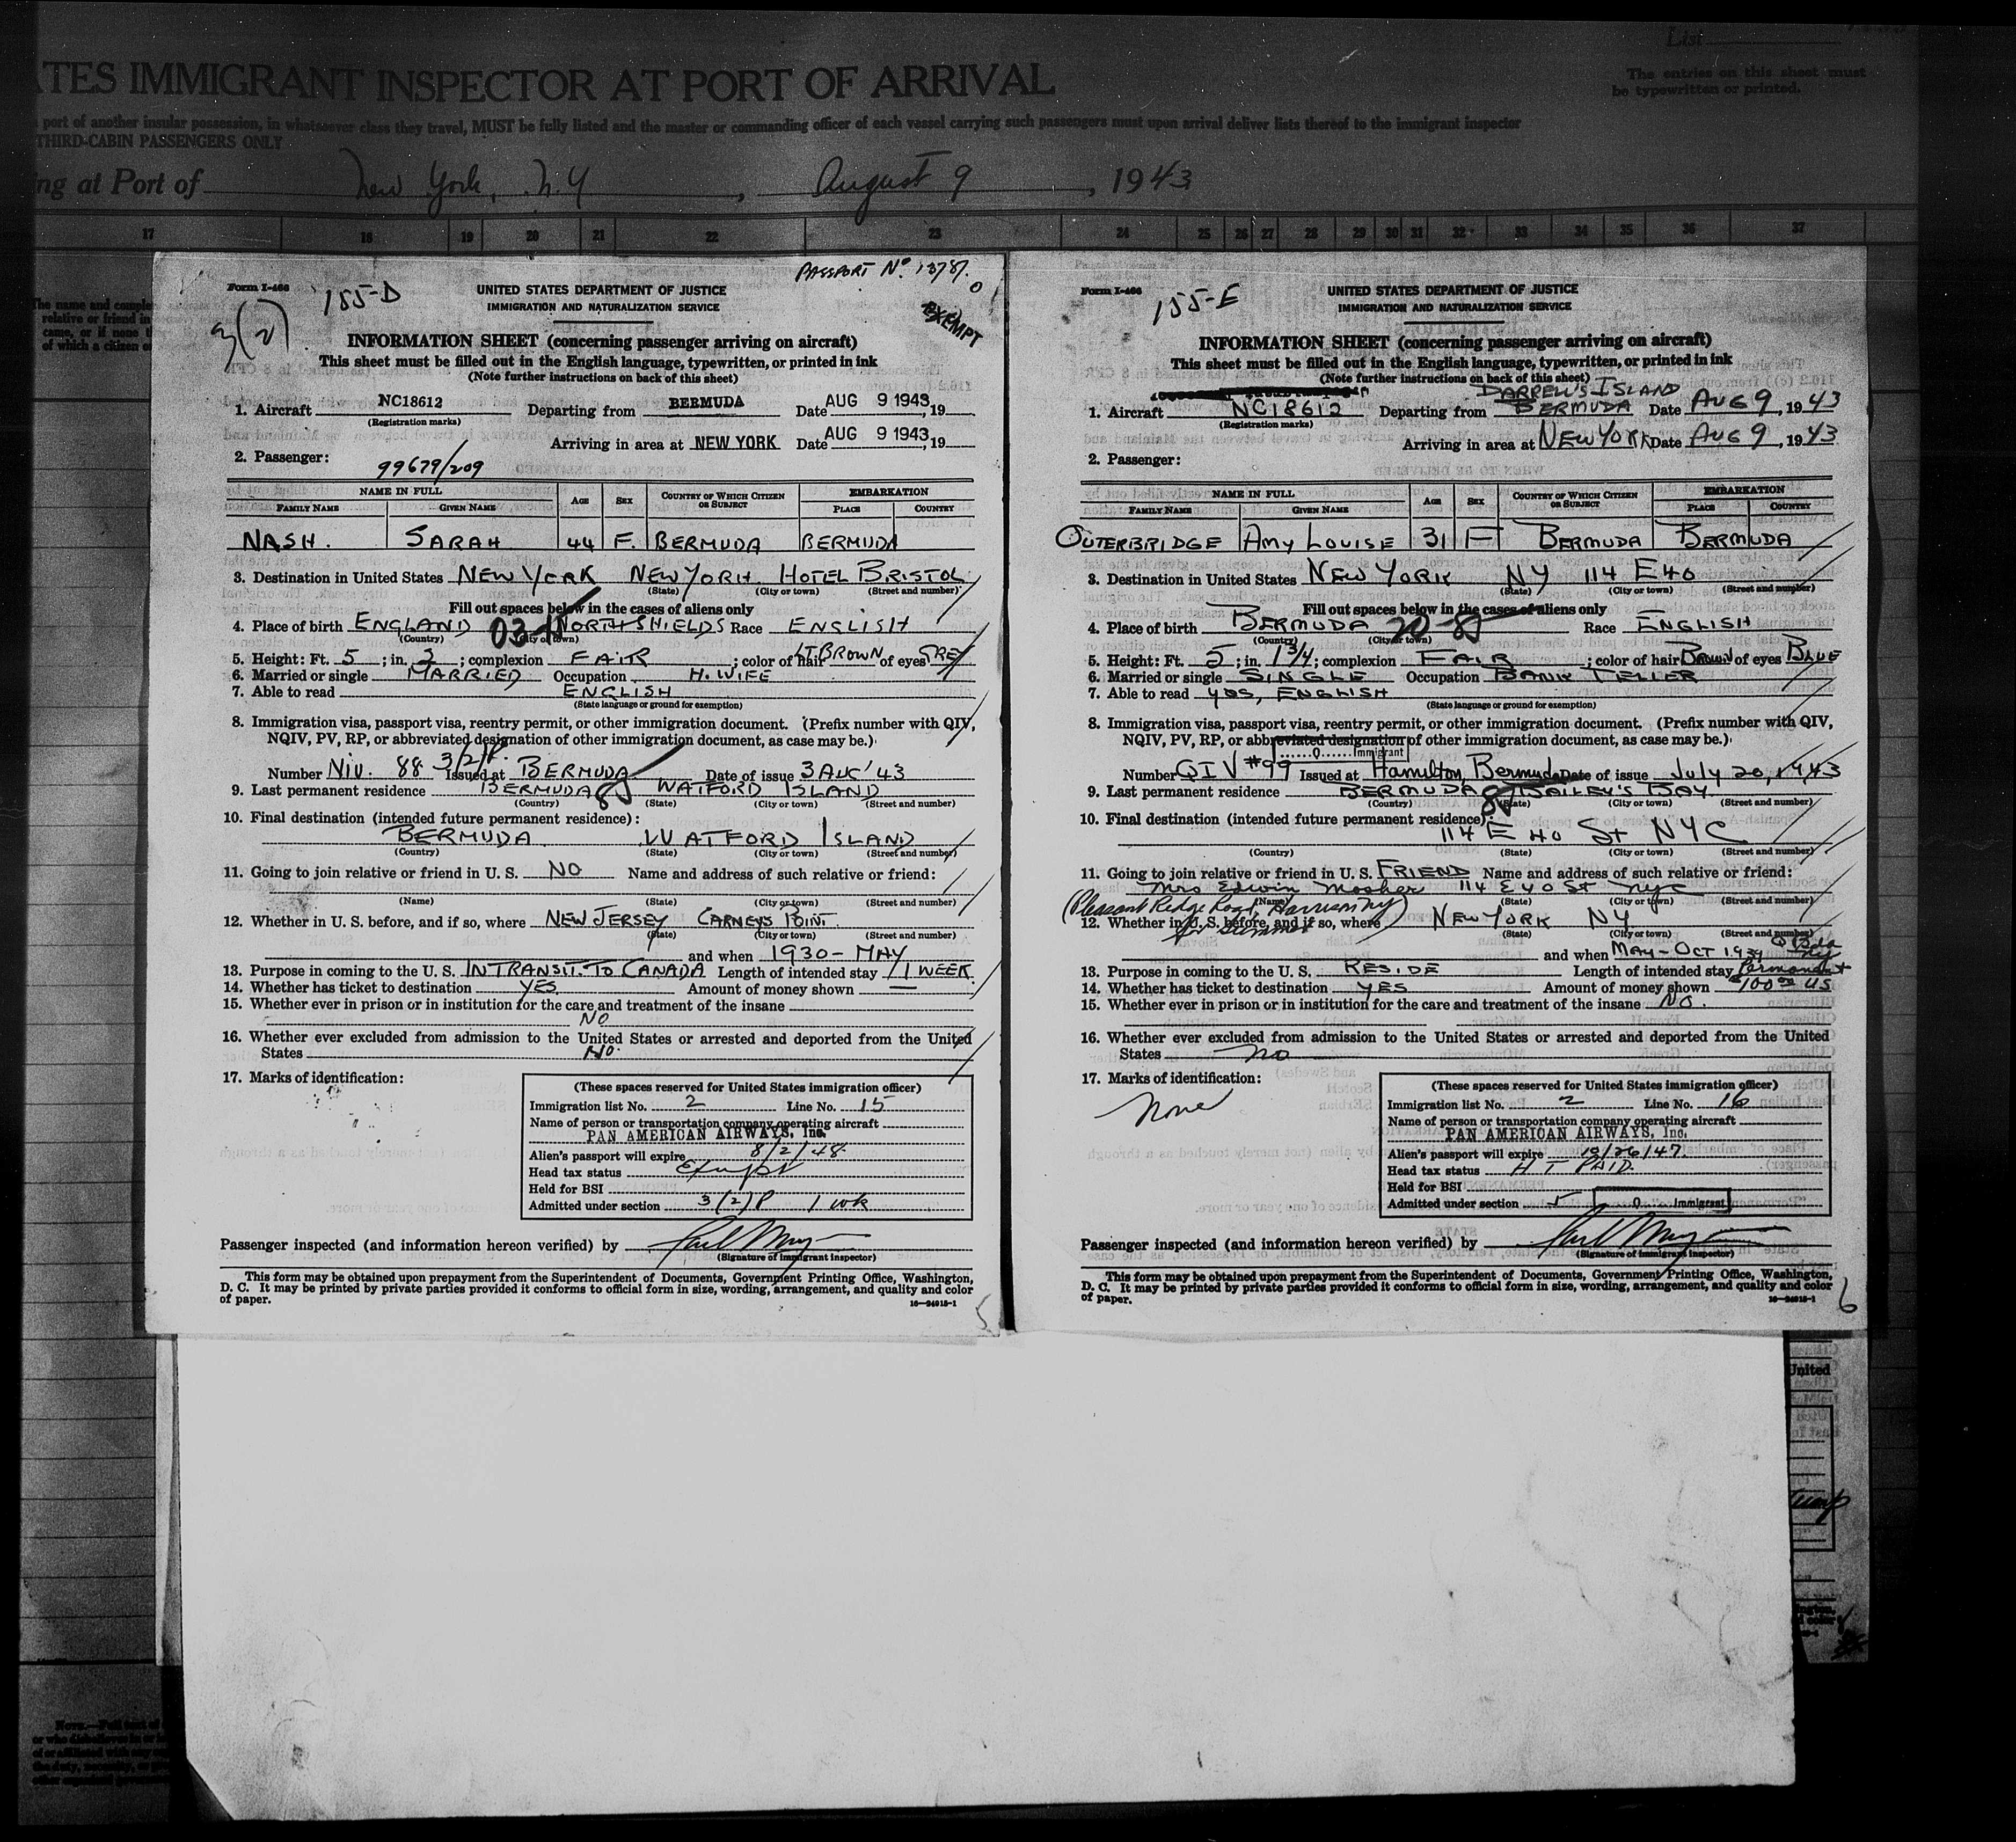 List
TES IMMIGRANT INSPECTOR AT PORT OF ARRIVAL
The entries on this sheet must
be typewritten or printed.
port of another insular possession, in whatsoever class they travel, MUST be fully listed and the master or commanding officer of each vessel carrying such passengers must upon arrival deliver lists thereof to the immigrant inspector
THIRD-CABIN PASSENGERS ONLY
ng at Port of New York, N.Y , August 9 , 1943
17 18 19 20 21 22 23 24 25 26 27 28 29 30 31 32 33 34 35 36 37
PASSPORT No. 13787.
Form I-466
155-D
3(2)
EXEMPT
UNITED STATES DEPARTMENT OF JUSTICE
IMMIGRATION AND NATURALIZATION SERVICE
INFORMATION SHEET (concerning passenger arriving on aircraft)
This sheet must be filled out in the English language, typewritten, or printed in ink
(Note further instructions on back of this sheet)
1. Aircraft NC18612 Departing from BERMUDA Date AUG 9 1943, 19
(Registration marks)
Arriving in area at NEW YORK Date AUG 9 1943, 19
2. Passenger: 99679/209
NAME IN FULL AGE SEX COUNTRY OF WHICH CITIZEN OR SUBJECT EMBARKATION
FAMILY NAME GIVEN NAME PLACE COUNTRY
NASH. SARAH 44 F. BERMUDA BERMUDA
3. Destination in United States NEW YORK NEW YORK HOTEL BRISTOL
(State) (City or town) (Street and number)
Fill out spaces below in the cases of aliens only
4. Place of birth ENGLAND 03- NORTH SHIELDS Race ENGLISH
(Country) (City or town)
5. Height: Ft. 5 ; in. 3 ; complexion FAIR ; color of hair LT. BROWN of eyes GREY
6. Married or single MARRIED Occupation H. WIFE
7. Able to read ENGLISH
(State language or ground for exemption)
8. Immigration visa, passport visa, reentry permit, or other immigration document. (Prefix number with QIV,
NQIV, PV, RP, or abbreviated designation of other immigration document, as case may be.)
Number NIV. 88 3/2/P. Issued at BERMUDA Date of issue 3 AUG' 43
9. Last permanent residence BERMUDA WATFORD ISLAND
(Country) (State) (City or town) (Street and number)
10. Final destination (intended future permanent residence):
BERMUDA WATFORD ISLAND
(Country) (State) (City or town) (Street and number)
11. Going to join relative or friend in U. S. NO Name and address of such relative or friend:
(Name) (State) (City or town) (Street and number)
12. Whether in U. S. before, and if so, where NEW JERSEY CARNEYS POINT.
(State) (City or town) (Street and number)
and when 1930 - MAY
13. Purpose in coming to the U. S. IN TRANSIT. TO CANADA Length of intended stay 1 WEEK
14. Whether has ticket to destination YES Amount of money shown —
15. Whether ever in prison or in institution for the care and treatment of the insane
NO
16. Whether ever excluded from admission to the United States or arrested and deported from the United
States NO.
17. Marks of identification:
(These spaces reserved for United States immigration officer)
Immigration list No. 2 Line No. 15
Name of person or transportation company operating aircraft
PAN AMERICAN AIRWAYS, Inc.
Alien's passport will expire 8/2/48.
Head tax status Exempt
Held for BSI
Admitted under section 3(2)P 1 wk
Passenger inspected (and information hereon verified) by
(Signature of immigrant inspector)
This form may be obtained upon prepayment from the Superintendent of Documents, Government Printing Office, Washington,
D. C. It may be printed by private parties provided it conforms to official form in size, wording, arrangement, and quality and color
of paper.
16—24915-1
5
Form I-466
155-E
UNITED STATES DEPARTMENT OF JUSTICE
IMMIGRATION AND NATURALIZATION SERVICE
INFORMATION SHEET (concerning passenger arriving on aircraft)
This sheet must be filled out in the English language, typewritten, or printed in ink
(Note further instructions on back of this sheet)
DARRELL'S ISLAND
1. Aircraft NC18612 Departing from BERMUDA Date AUG 9, 1943
(Registration marks)
Arriving in area at NEW YORK Date AUG 9, 1943
2. Passenger:
NAME IN FULL AGE SEX COUNTRY OF WHICH CITIZEN OR SUBJECT EMBARKATION
FAMILY NAME GIVEN NAME PLACE COUNTRY
OUTERBRIDGE AMY LOUISE 31 F BERMUDA BERMUDA
3. Destination in United States NEW YORK NY 114 E 40
(State) (City or town) (Street and number)
Fill out spaces below in the cases of aliens only
4. Place of birth BERMUDA Race ENGLISH
(Country) (City or town)
5. Height: Ft. 5 ; in. 1 3/4 ; complexion FAIR ; color of hair BROWN of eyes BLUE
6. Married or single SINGLE Occupation BANK TELLER
7. Able to read YES, ENGLISH
(State language or ground for exemption)
8. Immigration visa, passport visa, reentry permit, or other immigration document. (Prefix number with QIV,
NQIV, PV, RP, or abbreviated designation of other immigration document, as case may be.)
Q Immigrant
Number QIV #99 Issued at Hamilton, Bermuda Date of issue July 20, 1943
9. Last permanent residence BERMUDA BAILEY'S BAY
(Country) (State) (City or town) (Street and number)
10. Final destination (intended future permanent residence):
114 E 40 St NYC
(Country) (State) (City or town) (Street and number)
11. Going to join relative or friend in U. S. FRIEND Name and address of such relative or friend:
Mrs Edwin Mosher 114 E 40 St NYC
(Name) (State) (City or town) (Street and number)
(Pleasant Ridge Road, Harrison NY)
for summer
12. Whether in U. S. before, and if so, where NEW YORK NY
(State) (City or town) (Street and number)
and when MAY - OCT 1939
13. Purpose in coming to the U. S. RESIDE Length of intended stay Permanent
14. Whether has ticket to destination YES Amount of money shown $100.00 US
15. Whether ever in prison or in institution for the care and treatment of the insane NO.
16. Whether ever excluded from admission to the United States or arrested and deported from the United
States no
17. Marks of identification:
None
(These spaces reserved for United States immigration officer)
Immigration list No. 2 Line No. 16
Name of person or transportation company operating aircraft
PAN AMERICAN AIRWAYS, Inc.
Alien's passport will expire 10/26/47
Head tax status H T PAID
Held for BSI
Admitted under section 5 Q Immigrant
Passenger inspected (and information hereon verified) by
(Signature of immigrant inspector)
This form may be obtained upon prepayment from the Superintendent of Documents, Government Printing Office, Washington,
D. C. It may be printed by private parties provided it conforms to official form in size, wording, arrangement, and quality and color
of paper.
16—24915-1
6
United